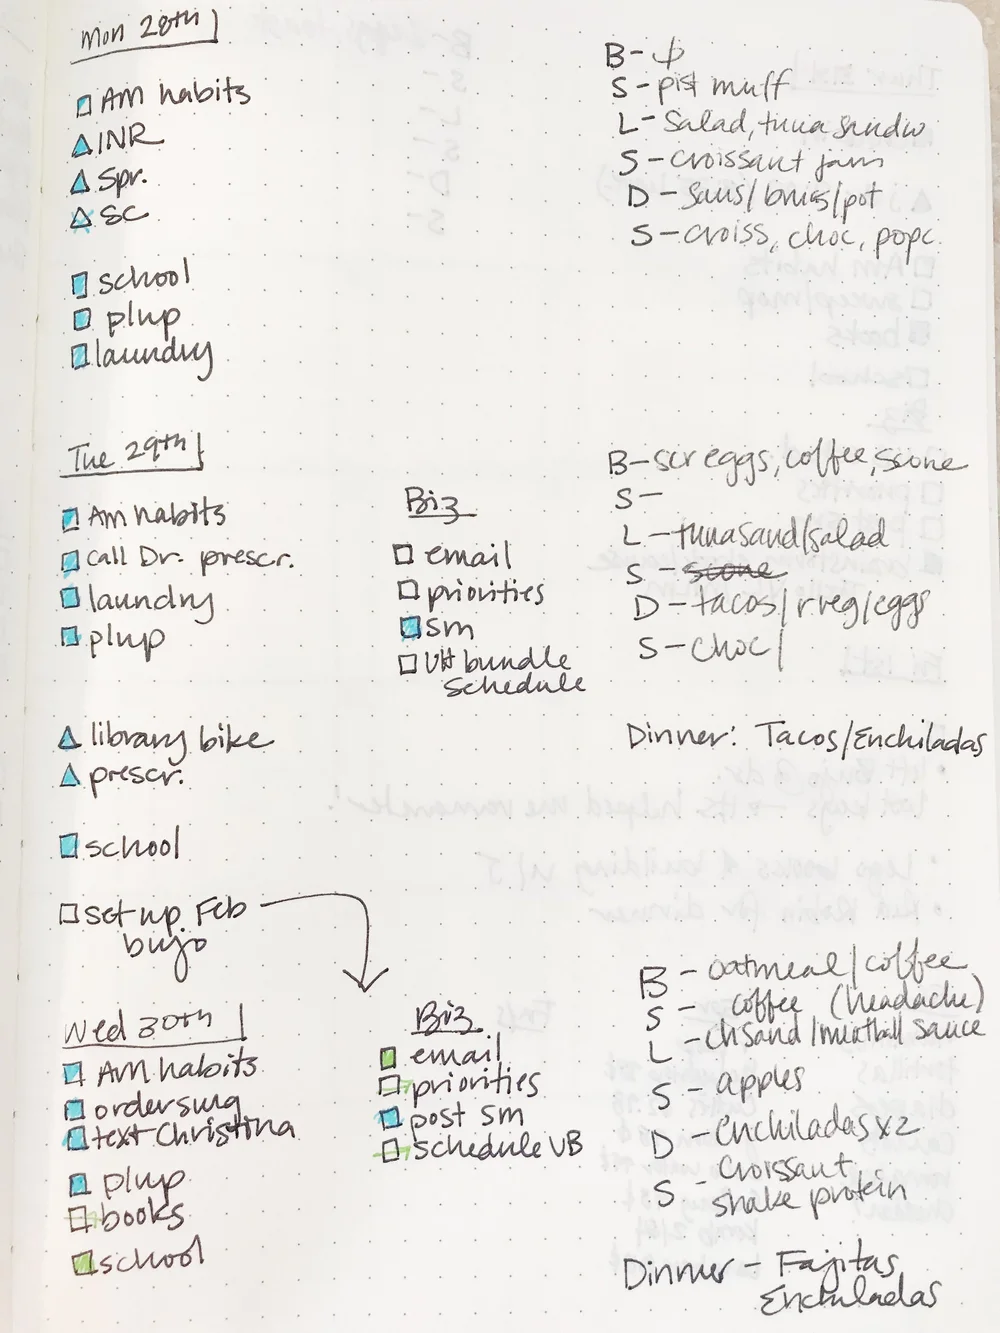 Mon 28th
AM habits
INR
Spr.
SC
school
plup
laundry
B-
S- pist muff
L- Salad, tuna sandw
S- croissant jam
D- saus/ /pot
S- croiss, choc, popc.
Tue 29th
AM habits
call Dr. prescr.
laundry
plup
library bike
prescr.
school
set up Feb
bujo
Biz
email
priorities
sm
VH bundle
schedule
B- scr eggs, coffee, scone
S-
L- tuna sand/salad
S- scone
D- tacos/rveg/eggs
S- choc/
Dinner: Tacos/Enchiladas
Wed 30th
AM habits
order
text Christina
plup
books
school
Biz
email
priorities
post sm
schedule VB
B- oatmeal/coffee
S- coffee (headache)
L- chsand/meatball sauce
S- apples
D- enchiladas x2
S- croissant
shake protein
Dinner- Fajitas
Enchiladas